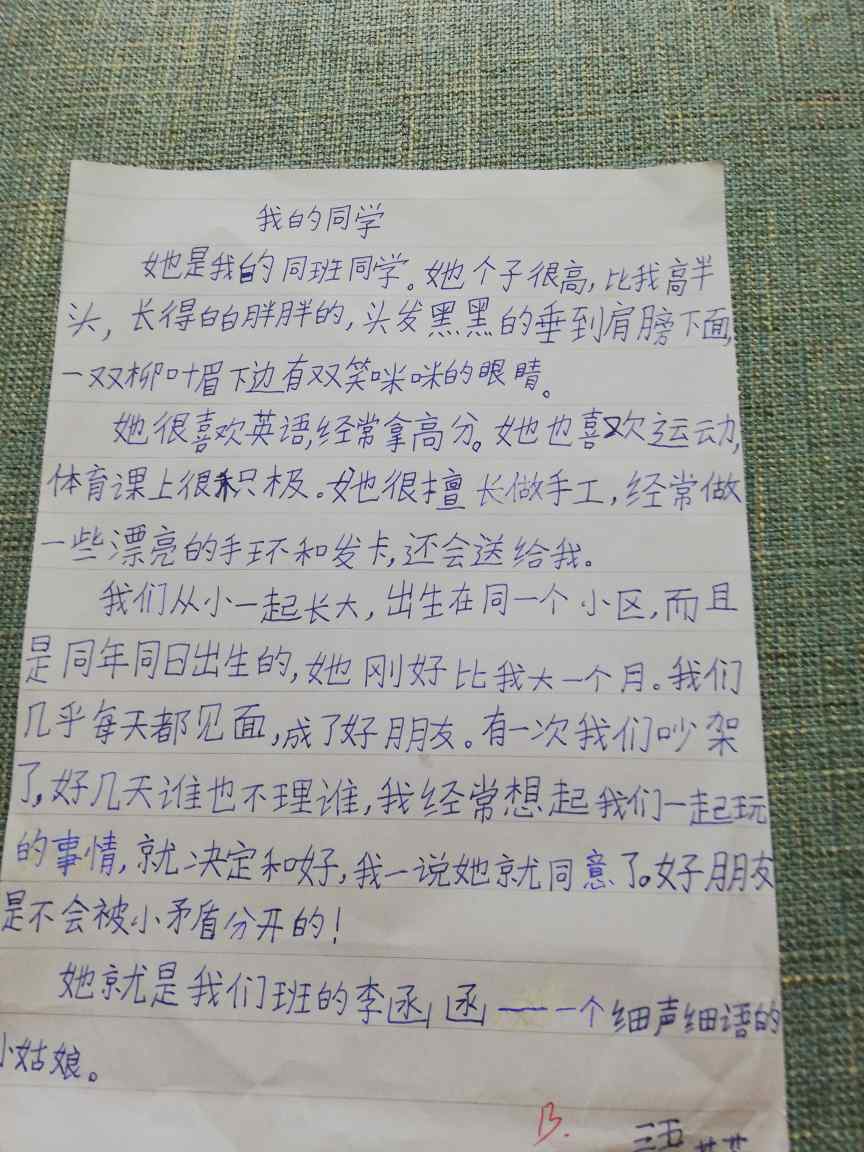 我的同学
她是我的同班同学。她个子很高,比我高半
头,长得白白胖胖的,头发黑黑的垂到肩膀下面,
一双柳叶眉下边有双笑咪咪的眼睛。
她很喜欢英语,经常拿高分。她也喜欢运动,
体育课上很积极。她很擅长做手工,经常做
一些漂亮的手环和发卡,还会送给我。
我们从小一起长大,出生在同一个小区,而且
是同年同日出生的,她刚好比我大一个月。我们
几乎每天都见面,成了好朋友。有一次我们吵架
了,好几天谁也不理谁,我经常想起我们一起玩
的事情,就决定和好,我一说她就同意了。好朋友
是不会被小矛盾分开的!
她就是我们班的李函函——一个细声细语的
小姑娘。
B.
三五